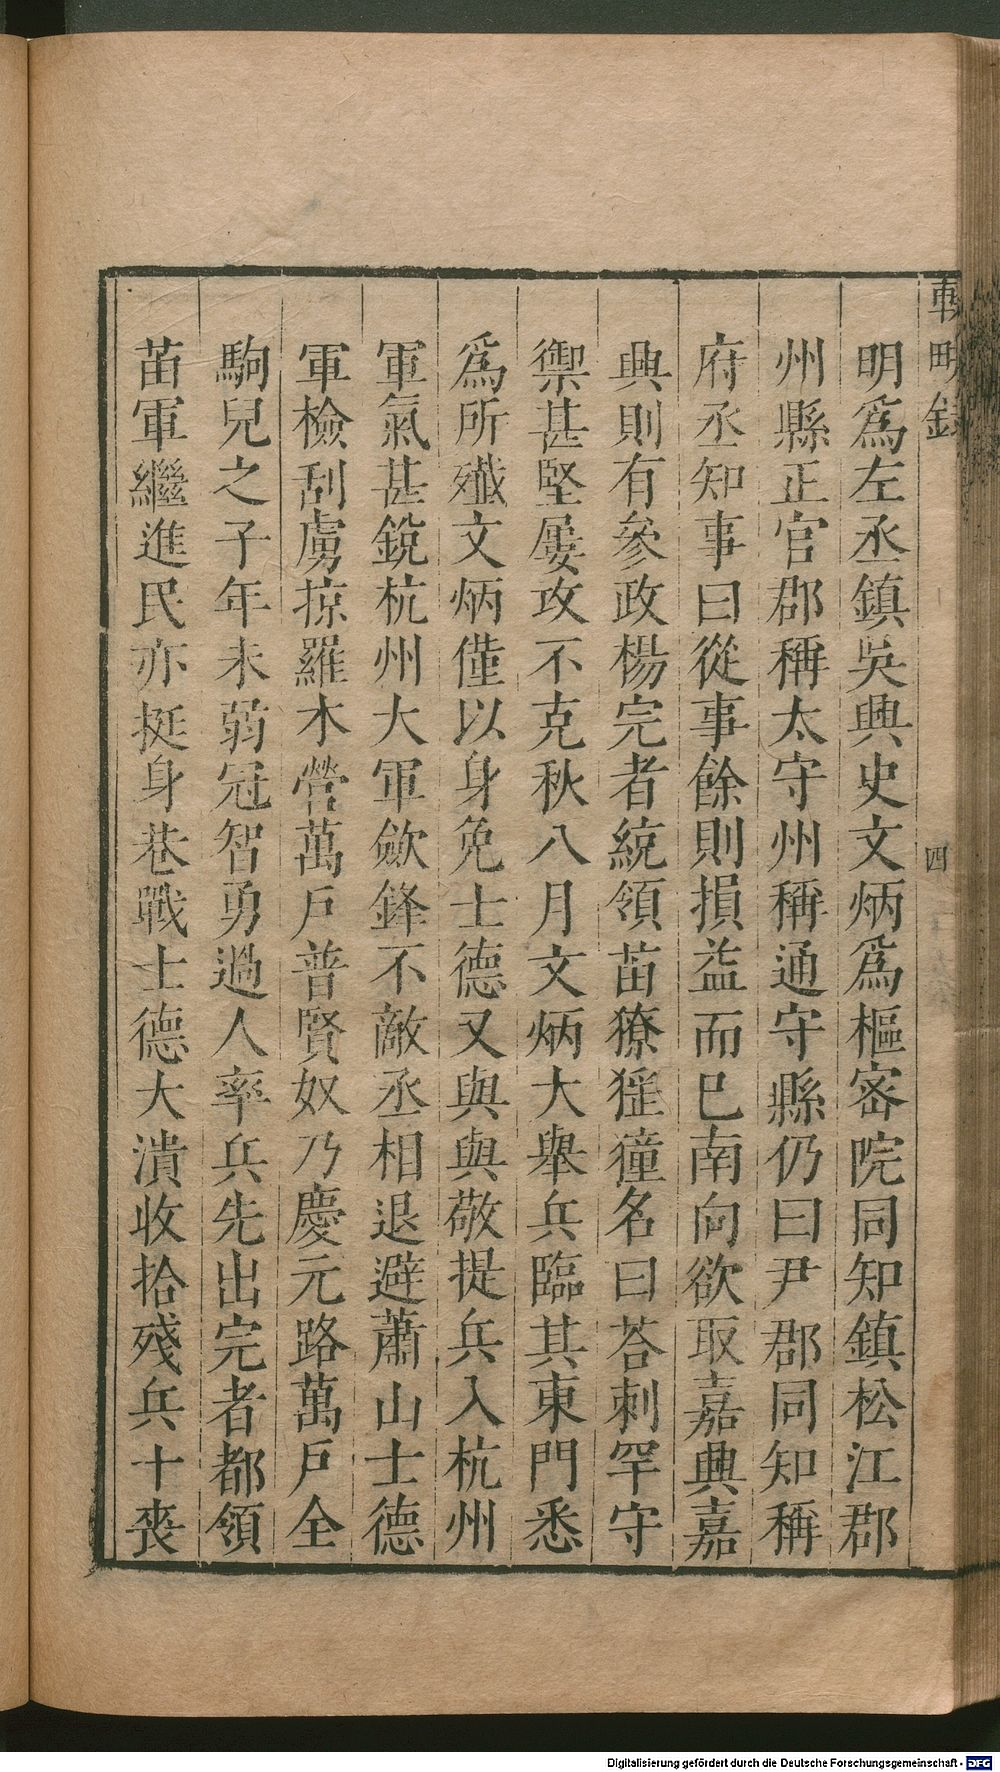 明爲左丞鎮吳興史文炳爲樞密院同知鎮松江郡
州縣正官郡稱太守州稱通守縣仍曰尹郡同知稱
府丞知事曰從事餘則損益而已南向欲取嘉興嘉
興則有參政楊完者統領苗獠猺獞名曰荅刺罕守
禦甚堅屢攻不克秋八月文炳大舉兵臨其東門悉
爲所殲文炳僅以身免士德又與與敬提兵入杭州
軍氣甚銳杭州大軍歛鋒不敵丞相退避蕭山士德
軍檢刮虜掠羅木營萬戶普賢奴乃慶元路萬戶全
駒兒之子年未弱冠智勇過人率兵先出完者都領
苗軍繼進民亦挺身巷戰士德大潰收拾殘兵十喪
四
Digitalisierung gefördert durch die Deutsche Forschungsgemeinschaft - DFG